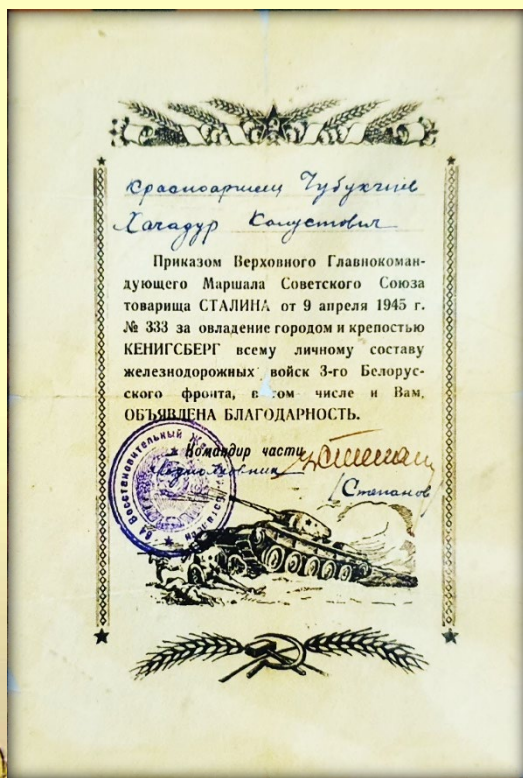 Красноармеец Чубукчиев
Хачадур Калустович
Приказом Верховного Главнокоман-
дующего Маршала Советского Союза
товарища СТАЛИНА от 9 апреля 1945 г.
№ 333 за овладение городом и крепостью
КЕНИГСБЕРГ всему личному составу
железнодорожных войск 3-го Белорус-
ского фронта, в том числе и Вам,
ОБЪЯВЛЕНА БЛАГОДАРНОСТЬ.
Командир части
Подполковник
/Степанов
Восстановительный